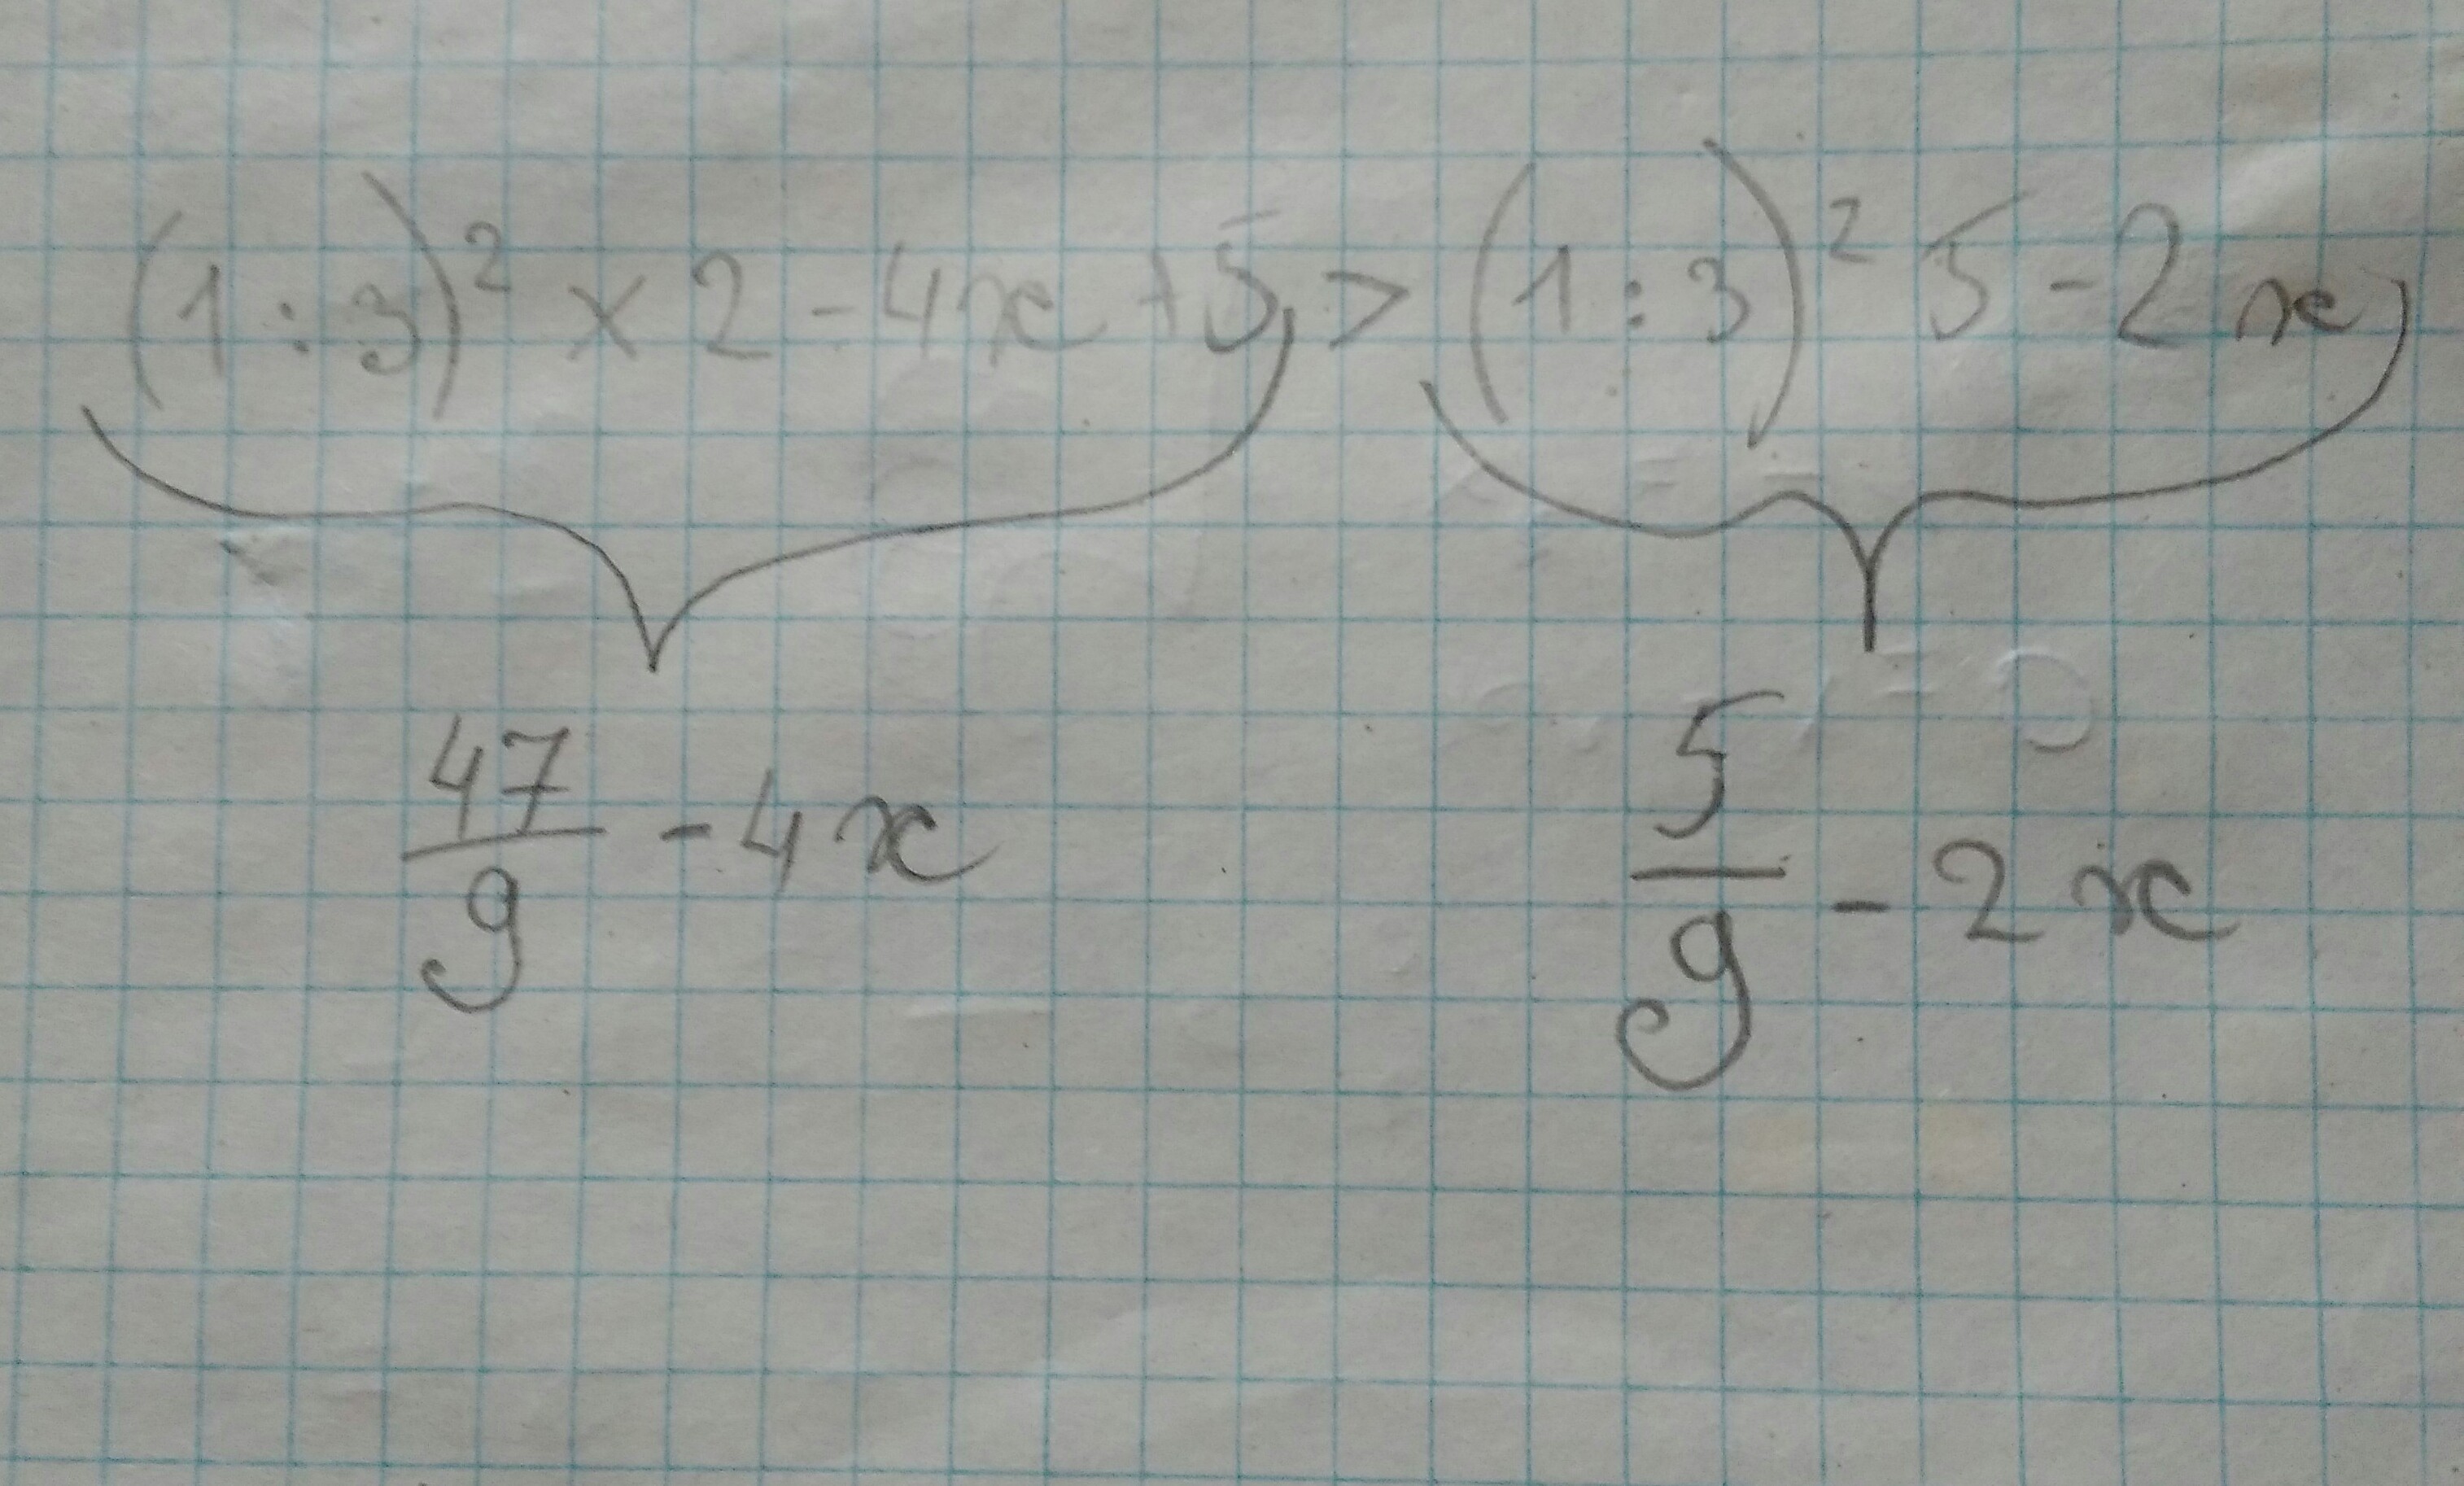 (1:3)² × 2 - 4x + 5 > (1:3)² 5 - 2x
47/9 - 4x
5/9 - 2x